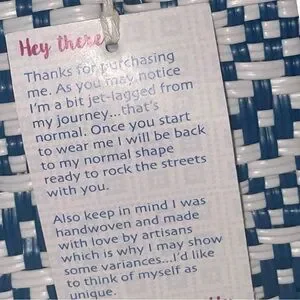 Hey there
Thanks for purchasing
me. As you may notice
I'm a bit jet-lagged from
my journey...that's
normal. Once you start
to wear me I will be back
to my normal shape
ready to rock the streets
with you.
Also keep in mind I was
handwoven and made
with love by artisans
which is why I may show
some variances...I'd like
to think of myself as
unique.